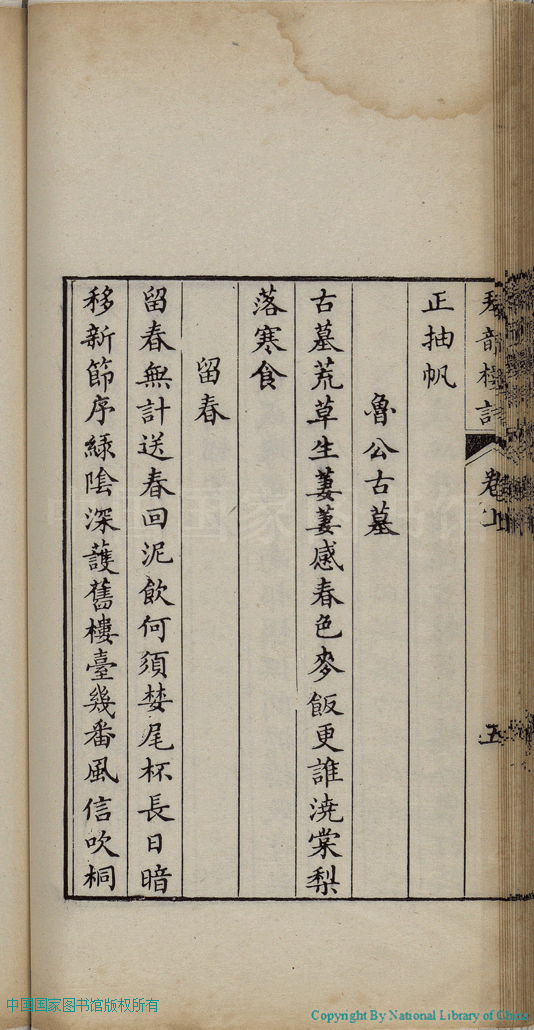 琴韵楼詩 卷上 五
正抽帆
魯公古墓
古墓荒草生萋萋感春色麥飯更誰澆棠梨
落寒食
留春
留春無計送春回泥飲何須婪尾杯長日暗
移新節序綠陰深護舊樓臺幾番風信吹桐
中国国家图书馆版权所有
Copyright By National Library of China